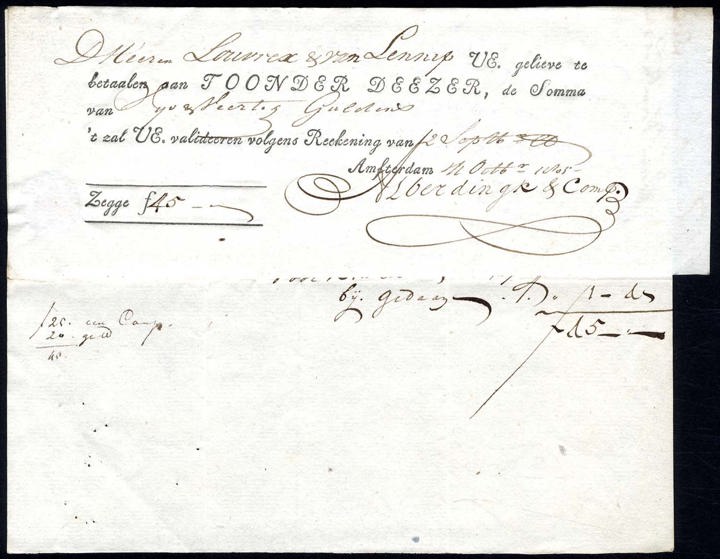 D Heeren Louvrex & van Lennep UE. gelieve te
betaalen aan TOONDER DEEZER, de Somma
van Vyf & Veertig Guldens
't zal UE. valideeren volgens Reekening van 12 Septb
Amsterdam 4 Octbr 1805
Alberdingk & Comp.
Zegge f 45 —
bij gedaan
f 25. een Coup.
20. geld
45.
f 45 —